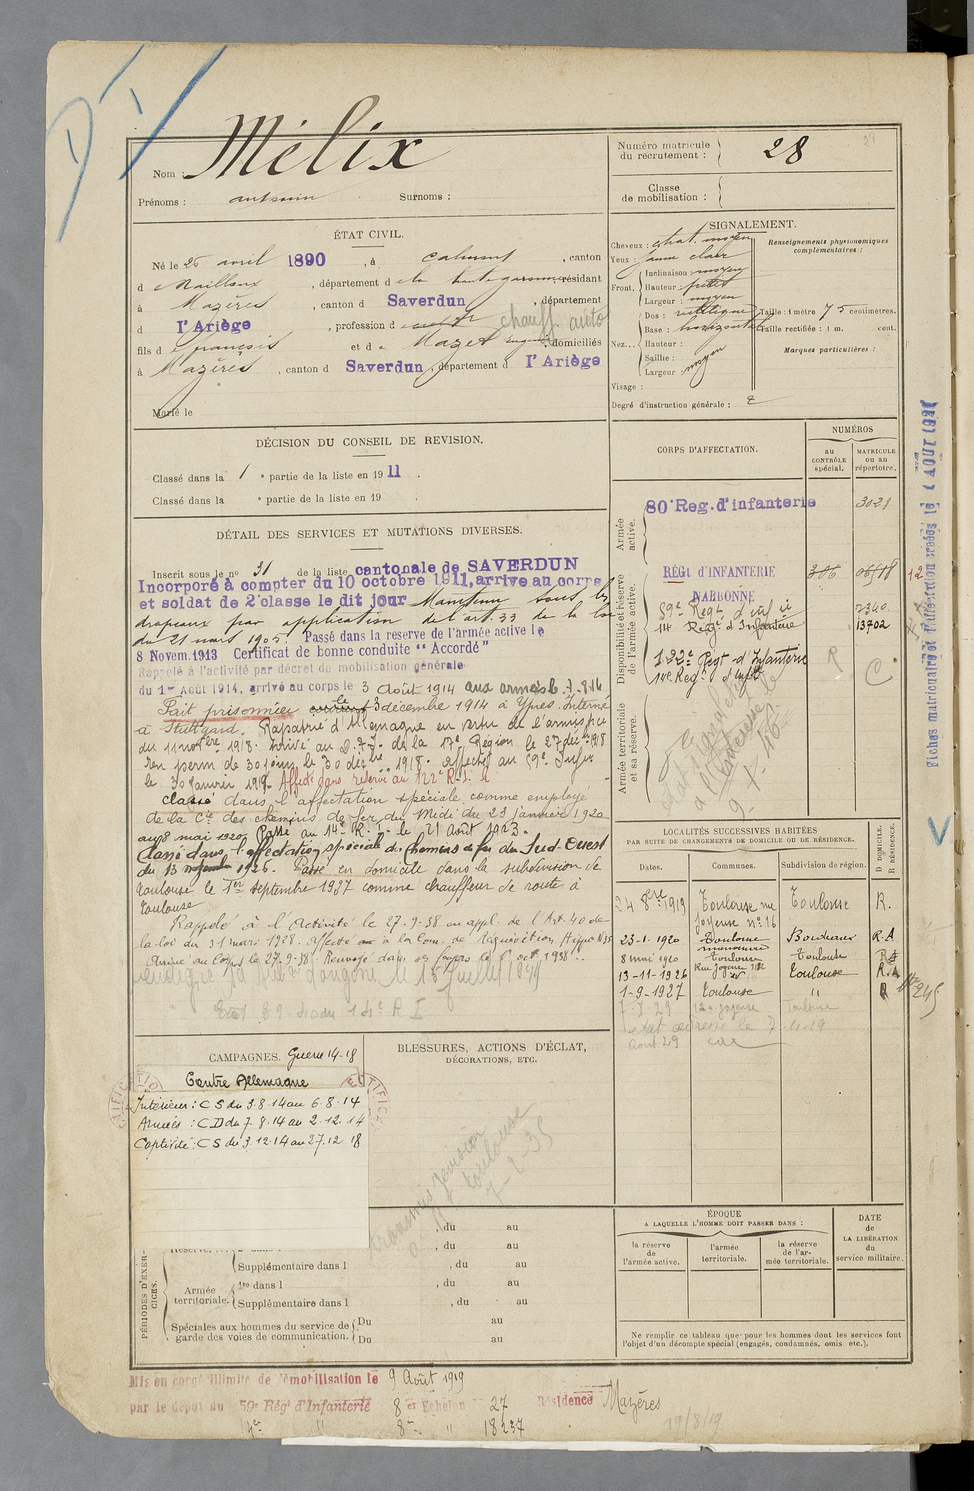 Mélix
Nom :
Prénoms : antonin Surnoms :
Numéro matricule
du recrutement :
28
Classe
de mobilisation :
ÉTAT CIVIL.
Né le 26 avril 1890, à calmont, canton
de Nailloux, département de la haute garonne, résidant
à Mazères, canton d Saverdun, département
d l'Ariège, profession de chauff auto
fils de françois et de Mazet, domiciliés
à Mazères, canton d Saverdun, département d l'Ariège
Marié le
SIGNALEMENT.
Cheveux : chat. moyen
Yeux : jaune clair
Front. Inclinaison moyen
Hauteur petit
Largeur : moyen
Nez... Dos : rectiligne
Base : horizontal
Hauteur :
Saillie :
Largeur : moyen
Visage :
Degré d'instruction générale : 2
Renseignements physionomiques
complémentaires :
Taille : 1 mètre 75 centimètres.
Taille rectifiée : 1 m. cent.
Marques particulières :
DÉCISION DU CONSEIL DE REVISION.
Classé dans la 1 e partie de la liste en 1911.
Classé dans la e partie de la liste en 19
DÉTAIL DES SERVICES ET MUTATIONS DIVERSES.
Inscrit sous le no 31 de la liste cantonale de SAVERDUN
Incorporé à compter du 10 octobre 1911, arrivé au corps
et soldat de 2e classe le dit jour Maintenu sous les
drapeaux par application de l'art. 33 de la loi
du 21 mars 1905. Passé dans la reserve de l'armée active le
8 Novem. 1913 Certificat de bonne conduite "Accordé"
Rappelé à l'activité par décret de mobilisation générale
du 1er Août 1914, arrivé au corps le 3 Août 1914 aux armées le 7.8.14
Fait prisonnier le 3 décembre 1914 à Ypres. Interné
à Stuttgard. Rapatrié d'Allemagne en vertu de l'armistice
du 11 novbre 1918. Arrivé au de la 17e Région le 27 déc. 1918
En perm de 30 jours le 30 décbre 1918. affecté au 59e Infie
le 30 janvier 1919. Affecté dans réserve au 122e R.I.
classé dans l'affectation spéciale comme employé
de la Cie des chemins de fer du Midi du 23 janvier 1920
au 8 mai 1920 Passé au 14e R.I. le 21 Août 1923.
Classé dans l'affectation spéciale des chemins de fer du Sud-Ouest
du 13 novembre 1926. Passé en domicile dans la subdivision de
Toulouse le 1er septembre 1927 comme chauffeur de route à
Toulouse
Rappelé à l'Activité le 27-9-38 en appl. de l'Art. 40 de
la loi du 31 mars 1928. Affecté à la Com. de Réquisition
Arrivé au Corps le 27.9.38. Renvoyé dans ses foyers le
CORPS D'AFFECTATION.
NUMÉROS
au
CONTRÔLE
spécial.
MATRICULE
ou au
répertoire.
Armée
active.
80e Reg. d'infanterie 3021
Disponibilité et réserve
de l'armée active.
RÉGt d'INFANTERIE
NARBONNE
59e Regt d'inf ie 2340
14e Regt d'Infanterie 13702
122e Regt d'Infanterie
Armée territoriale
et sa réserve.
LOCALITÉS SUCCESSIVES HABITÉES
PAR SUITE DE CHANGEMENTS DE DOMICILE OU DE RÉSIDENCE.
D DOMICILE.
R RÉSIDENCE.
Dates. Communes. Subdivision de région.
24 8bre 1919 Toulouse rue Toulouse R.
Joyeuse no 16
23-1-1920 Toulouse Bordeaux R.A
8 mai 1920 Toulouse Toulouse
13-11-1926 Rue Joyeuse Toulouse R.A
1-9-1927 Toulouse " R
CAMPAGNES. Guerre 14-18
Contre Allemagne
Intérieur : CS du 3.8.14 au 6.8.14
Armées : CD du 7.8.14 au 2.12.14
Captivité : CS du 3.12.14 au 27.12.18
BLESSURES, ACTIONS D'ÉCLAT,
DÉCORATIONS, ETC.
Transmis révision
à Toulouse
PÉRIODES D'EXERCICES.
, du au
, du au
Supplémentaire dans l , du au
Armée
territoriale.
1re dans l , du au
Supplémentaire dans l , du au
Spéciales aux hommes du service de
garde des voies de communication.
Du au
Du au
ÉPOQUE
A LAQUELLE L'HOMME DOIT PASSER DANS :
la réserve
de
l'armée active.
l'armée
territoriale.
la réserve
de l'ar-
mée territoriale.
DATE
de
LA LIBÉRATION
du
service militaire.
Ne remplir ce tableau que pour les hommes dont les services font
l'objet d'un décompte spécial (engagés, condamnés, omis, etc.).
Mis en congé illimité de démobilisation le 9 Août 1919
par le dépôt du 59e Rég. d'Infanterie 8 er Echelon 27 Résidence Mazères
18237
19/8/19